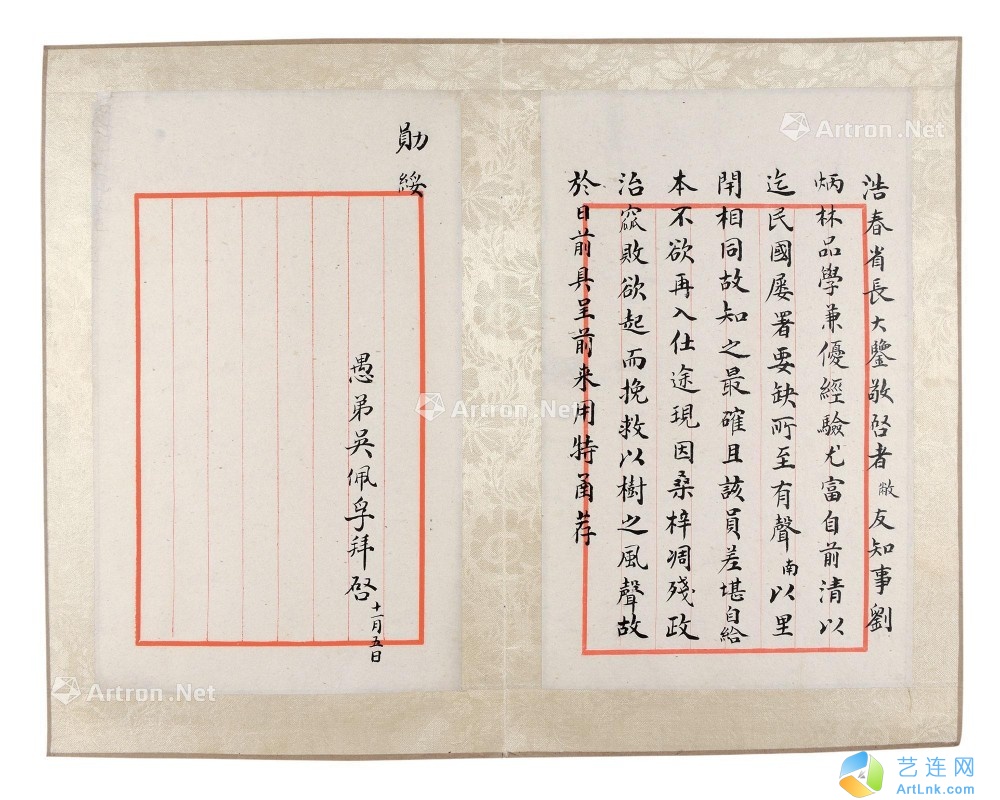 浩春省長大鑒敬啓者敝友知事劉
炳林品學兼優經驗尤富自前清以
迄民國屡署要缺所至有聲南以里
閈相同故知之最確且該員差堪自給
本不欲再入仕途現因桑梓凋殘政
治窳敗欲起而挽救以樹之風聲故
於日前具呈前来用特函荐
勛綏
愚弟吳佩孚拜啓
十一月五日
Artron.Net
Artron.Net
Artron.Net
艺连网
ArtLnk.com